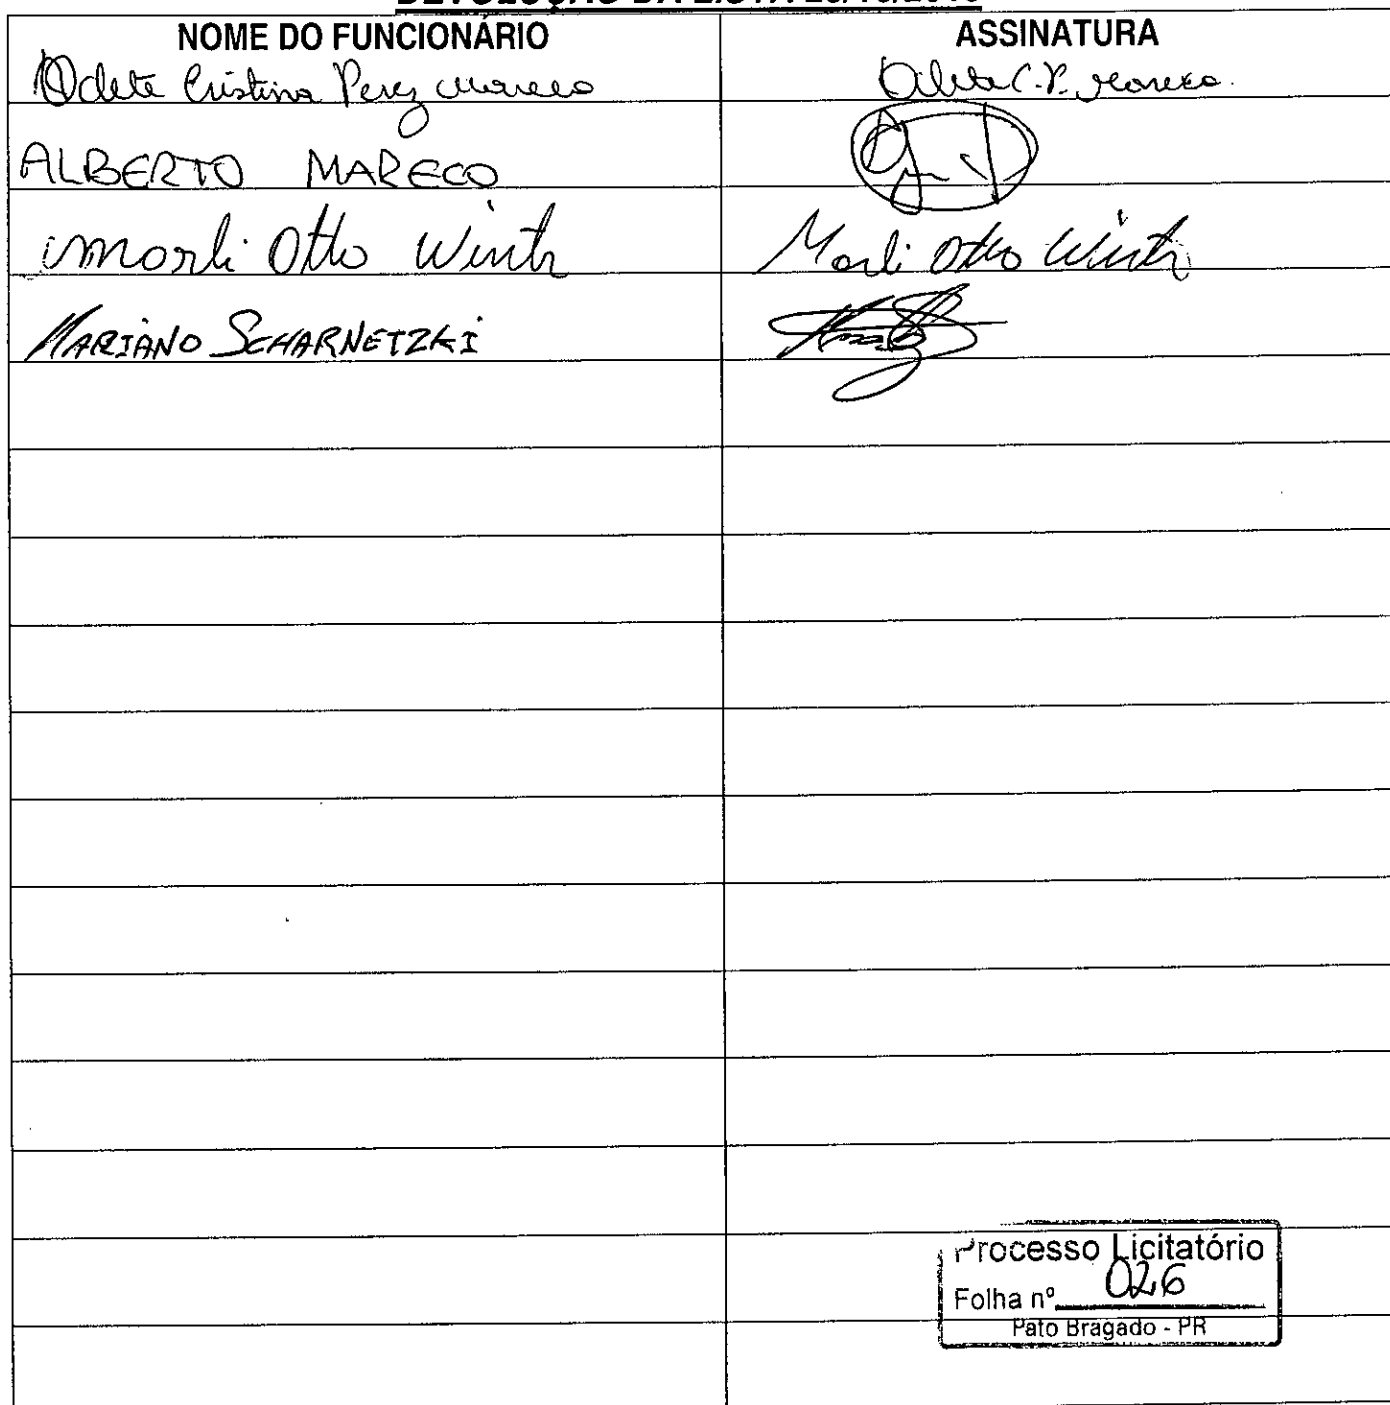 DEVOLUÇÃO DA LISTA
NOME DO FUNCIONÁRIO ASSINATURA
Odete Cristina Perez Mareco Odete C. P. Mareco.
ALBERTO MARECO
Marli Otto Wirth Marli Otto Wirth
MARIANO SCHARNETZKI
Processo Licitatório
Folha nº 026
Pato Bragado - PR